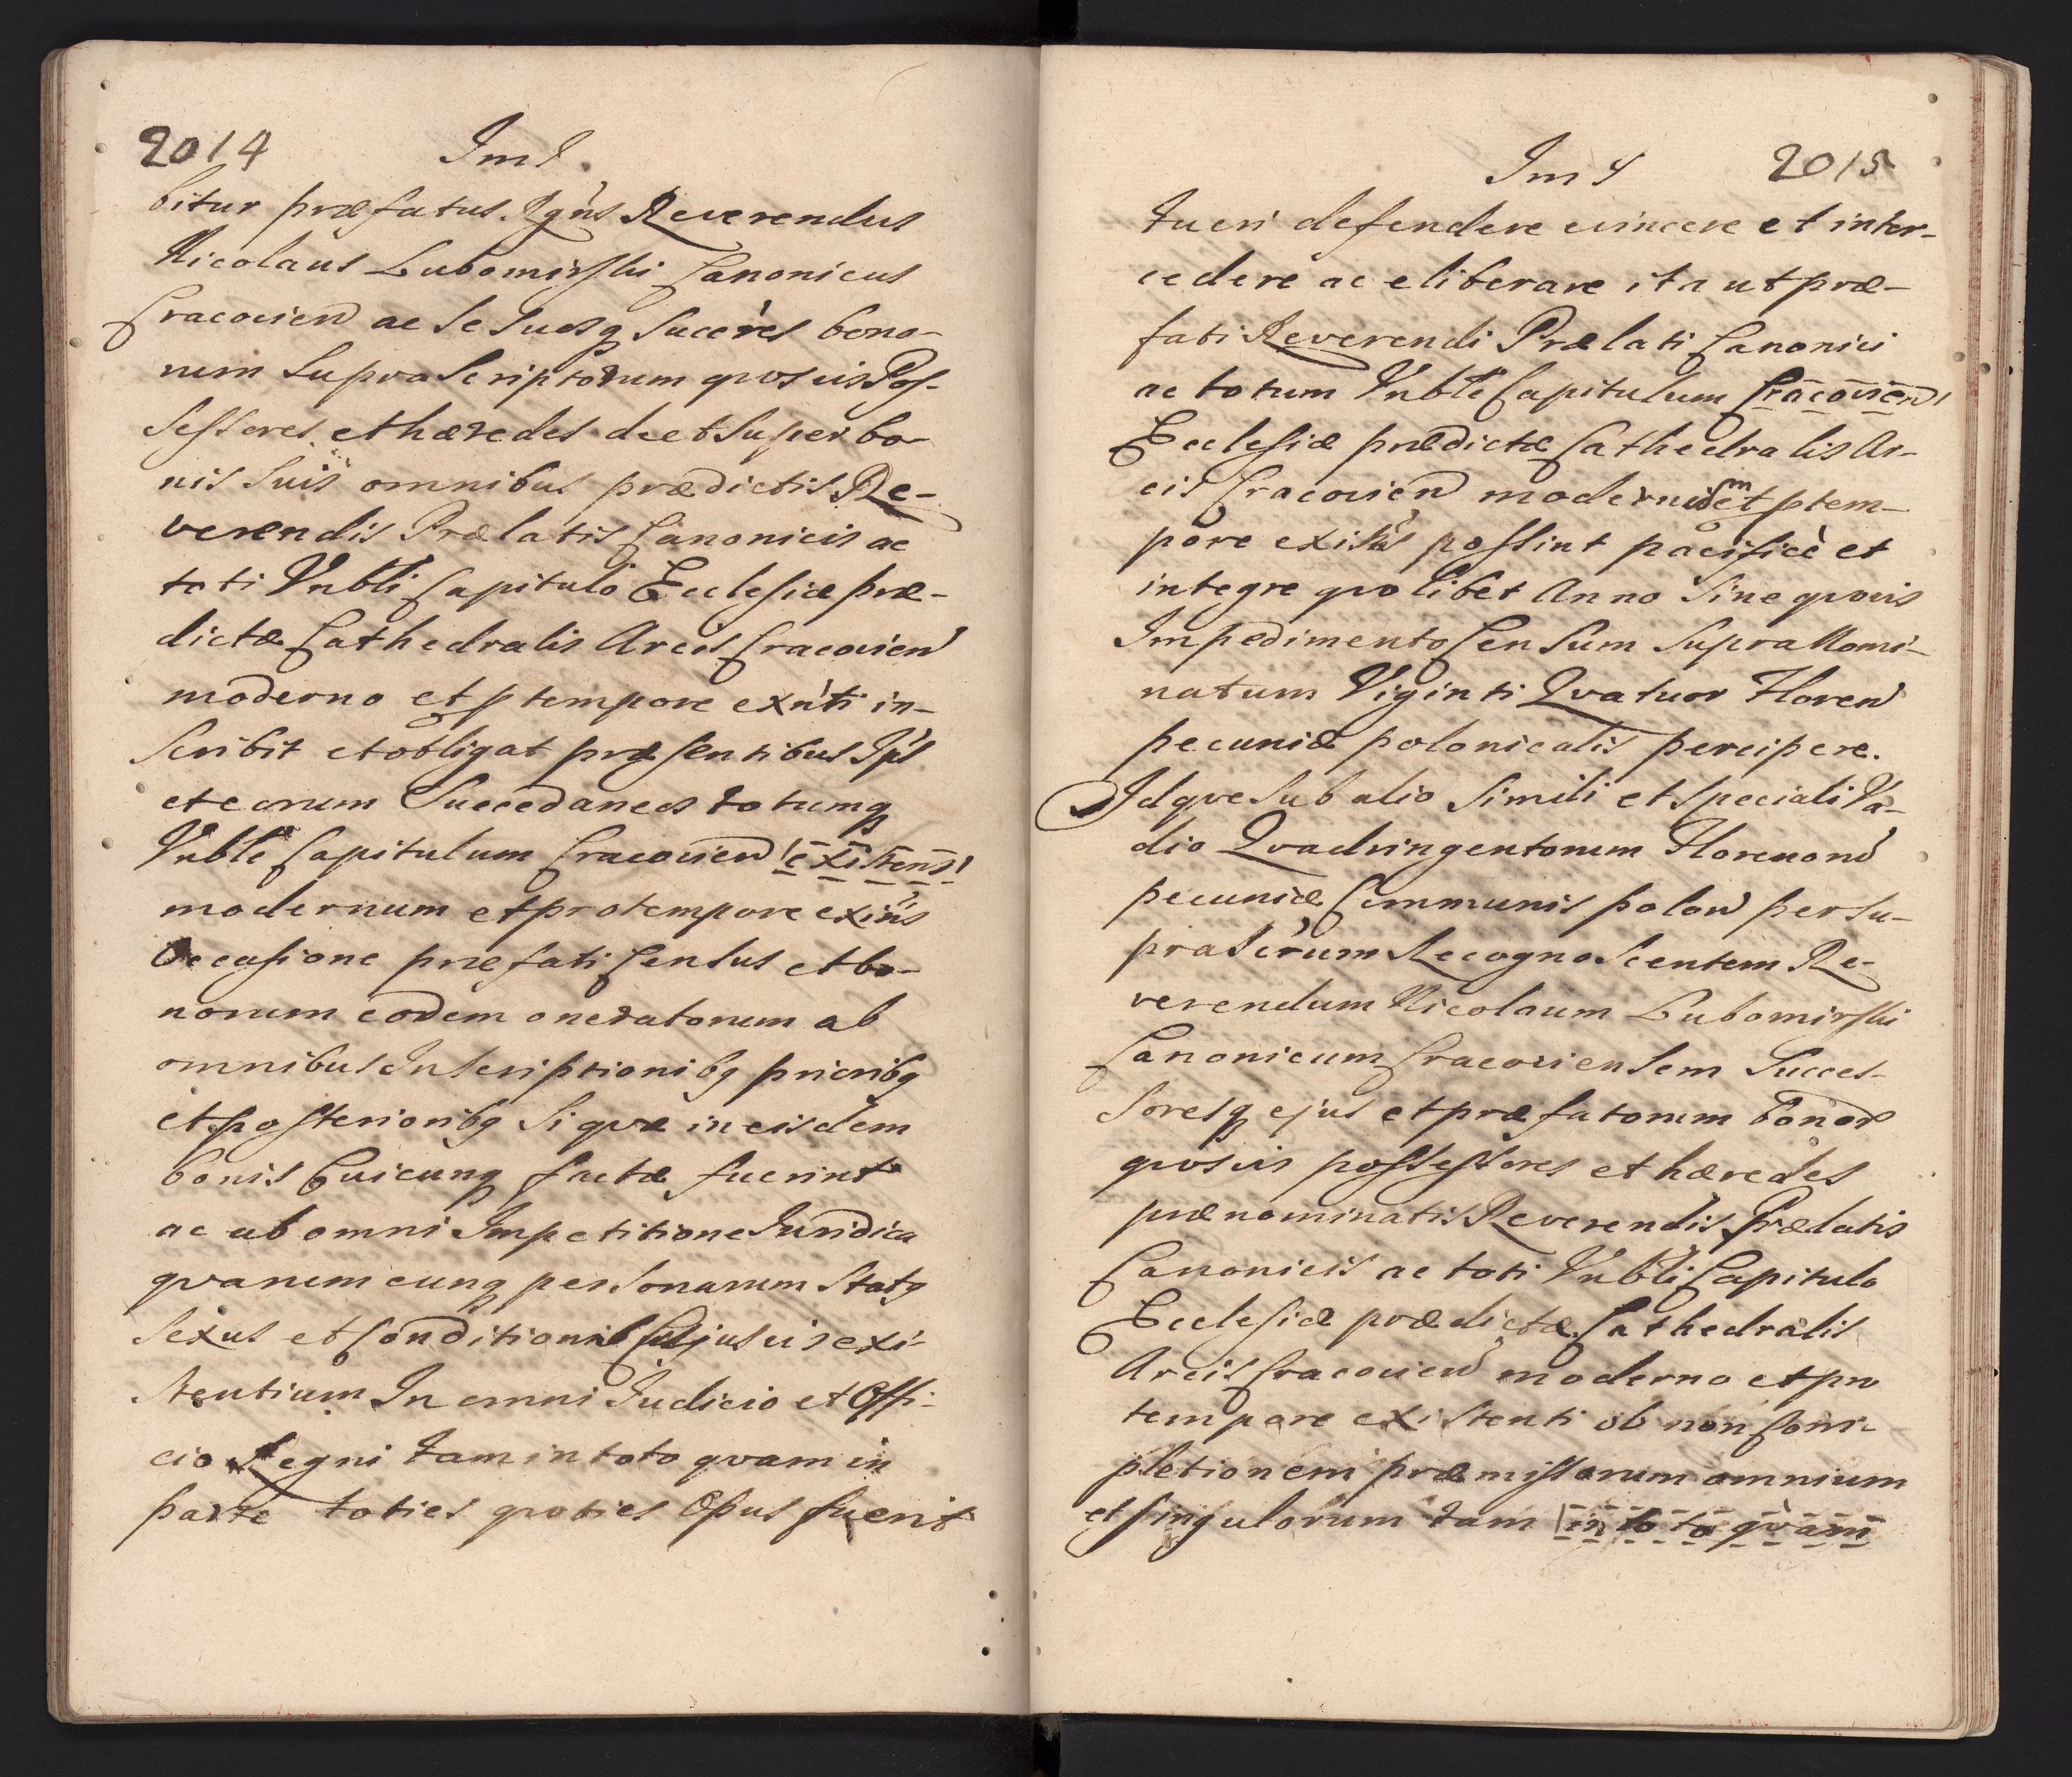 2014 Im I.
bitur præfatus Rgńs Reverendus
Nicolaus Lubomirski Canonicus
Cracovien ac Se Suosq Succeres bono-
rum SupraScriptorum qvosvis Pos-
Sessores et hæredes de et Super bo-
nis Suis omnibus prædictis Re-
verendis Prælatis Canonicis ac
toti Vnbli Capitulo Ecclesiæ præ-
dictæ Cathedralis Arcis Cracovien
moderno et p tempore exnti in-
Scribit et obligat præsentibus Ips
et eorum Succedaneos totumq
Vnble Capitulum Cracovien existens
modernum et pro tempore exińs
Occasione præfati Census et bo-
norum eodem oneratorum ab
omnibus Inscriptionibq prioribq
et posterioribq Si qvæ in eisdem
bonis Cuicunq factæ fuerint
ac ab omni Impetitione Juridica
qvarumcunq personarum Statq
Sexus et Conditionis Cujusvis exi-
stentium In omni Judicio et Offi-
cio Regni tam in toto qvam in
parte toties qvoties Opus fuerit
Im I 2015
tueri defendere evincere et inter-
cedere ac eliberare ita ut præ-
fati Reverendi Prælati Canonici
ac totum Vnble Capitulum Cracovien
Ecclesiæ prædictæ Cathedralis Ar-
cis Cracovien modernum et p tem-
pore exisńs possint pacificè et
integre qvolibet Anno Sine qvovis
Impedimento Censum Supra Nomi-
natum Viginti Qvatuor Floren
pecuniæ polonicalis percipere.
Idqve Sub alio Simili et Speciali Va-
dio Qvadringentorum Florenorū
pecuniæ Communis polon per Su-
praScrum Recognoscentem Re-
verendum Nicolaum Lubomirski
Canonicum Cracoviensem Succes-
Soresq ejus et præfatorum Bonor
qvosvis possessores et hæredes
prænominatis Reverendis Prælatis
Canonicis ac toti Vnbli Capitulo
Ecclesiæ prædictæ Cathedralis
Arcis Cracovien moderno et pro
tempore existenti ob non Com-
pletionem præmissorum omnium
et singulorum tam in toto qvam